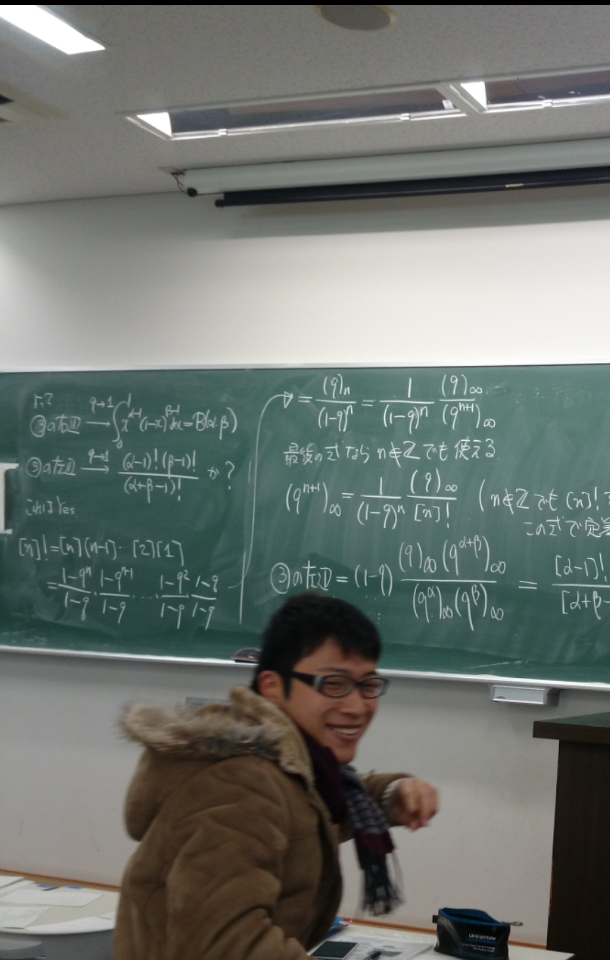 ②の左辺 q→1 → ∫₀¹ x^{α-1}(1-x)^{β-1}dx = B(α,β)
③の右辺 q→1 → (α-1)!(β-1)! / (α+β-1)! か?
これは Yes
[n]! = [n][n-1]⋯[2][1]
= (1-q^n)/(1-q) · (1-q^{n+1})/(1-q) ⋯ (1-q^2)/(1-q) (1-q)/(1-q)
= (q)_n/(1-q)^n = 1/(1-q)^n (q)_∞/(q^{n+1})_∞
最後の式なら n∉Z でも使える
(q^{n+1})_∞ = 1/(1-q)^n (q)_∞/[n]! (n∉Z でも [n]!
この式で定義
③の右辺 = (1-q) (q)_∞(q^{α+β})_∞ / (q^α)_∞(q^β)_∞ = [α-1]! / [α+β-